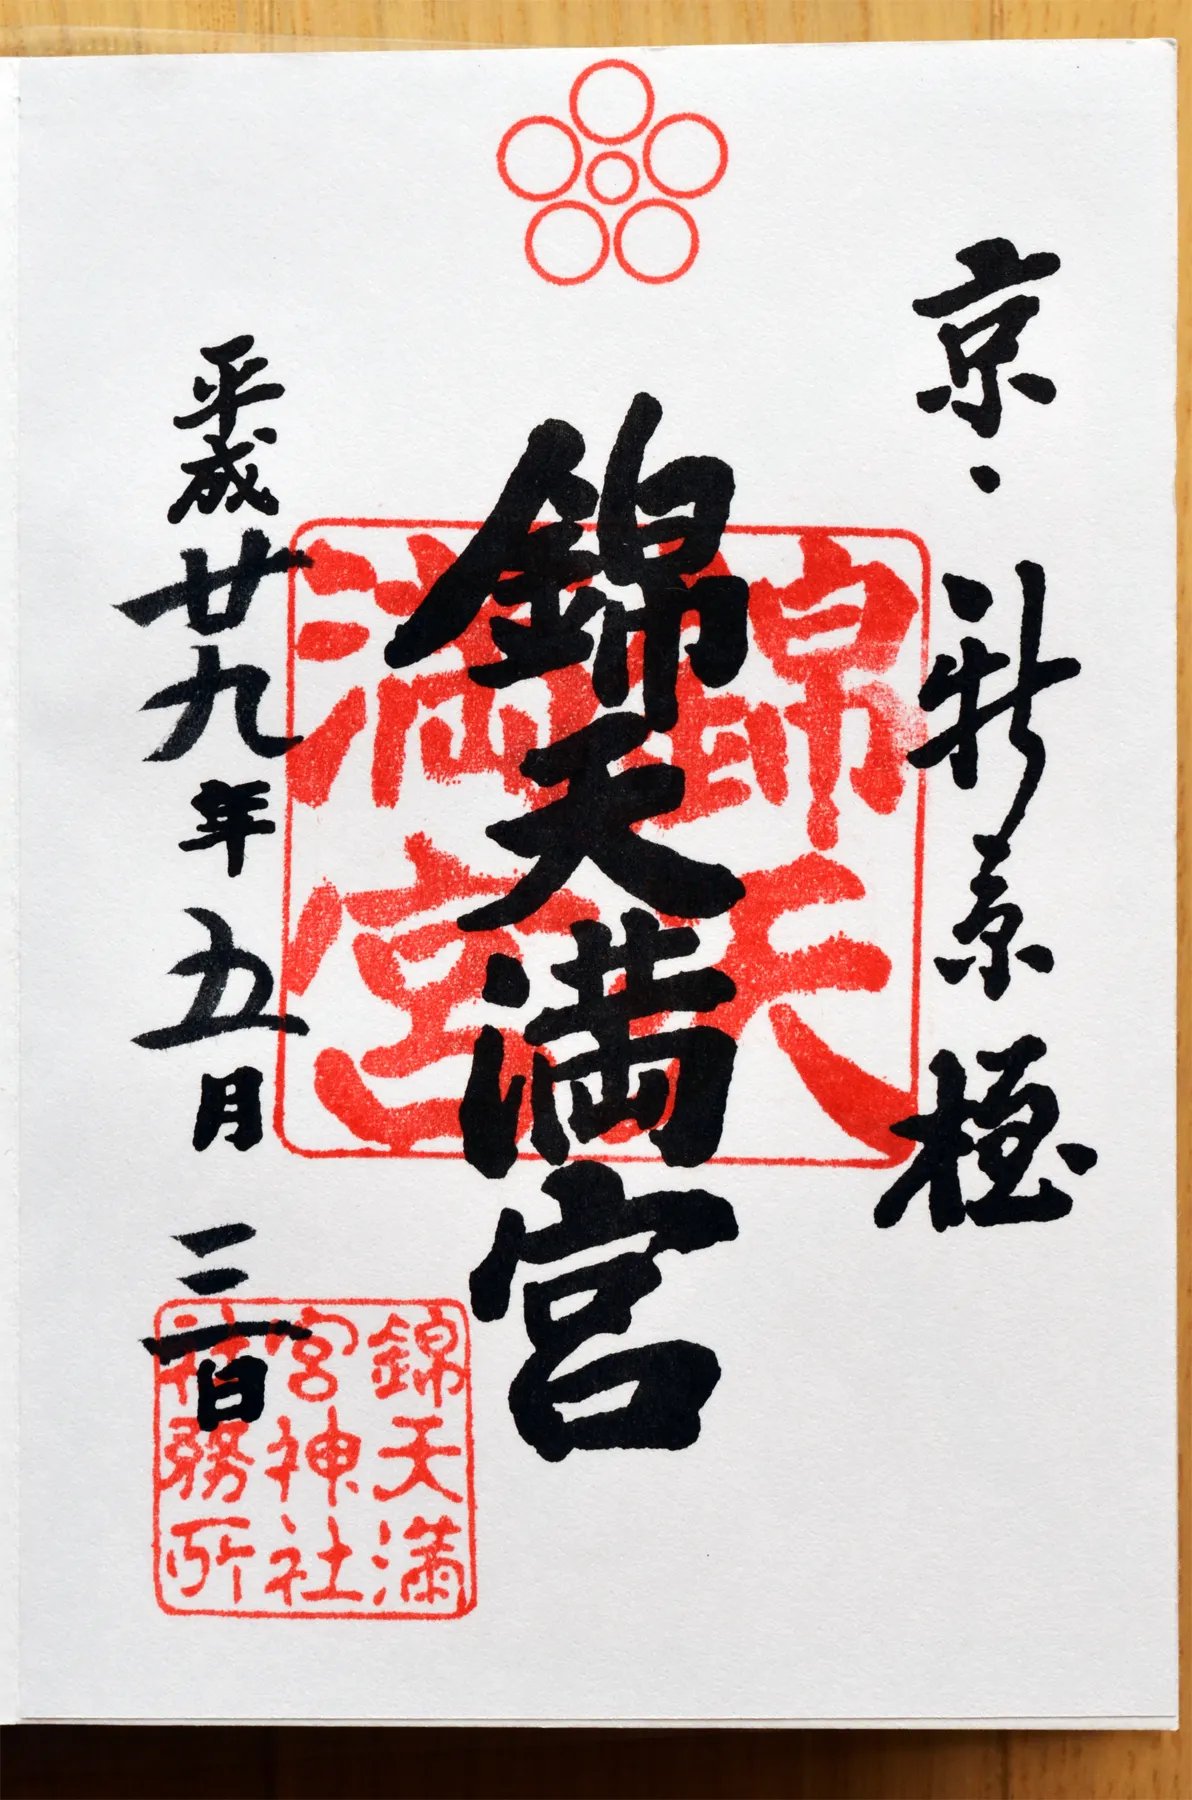 京・新京極
錦天満宮
錦天
満宮
平成廿九年五月三日
錦天満
宮神社
社務所